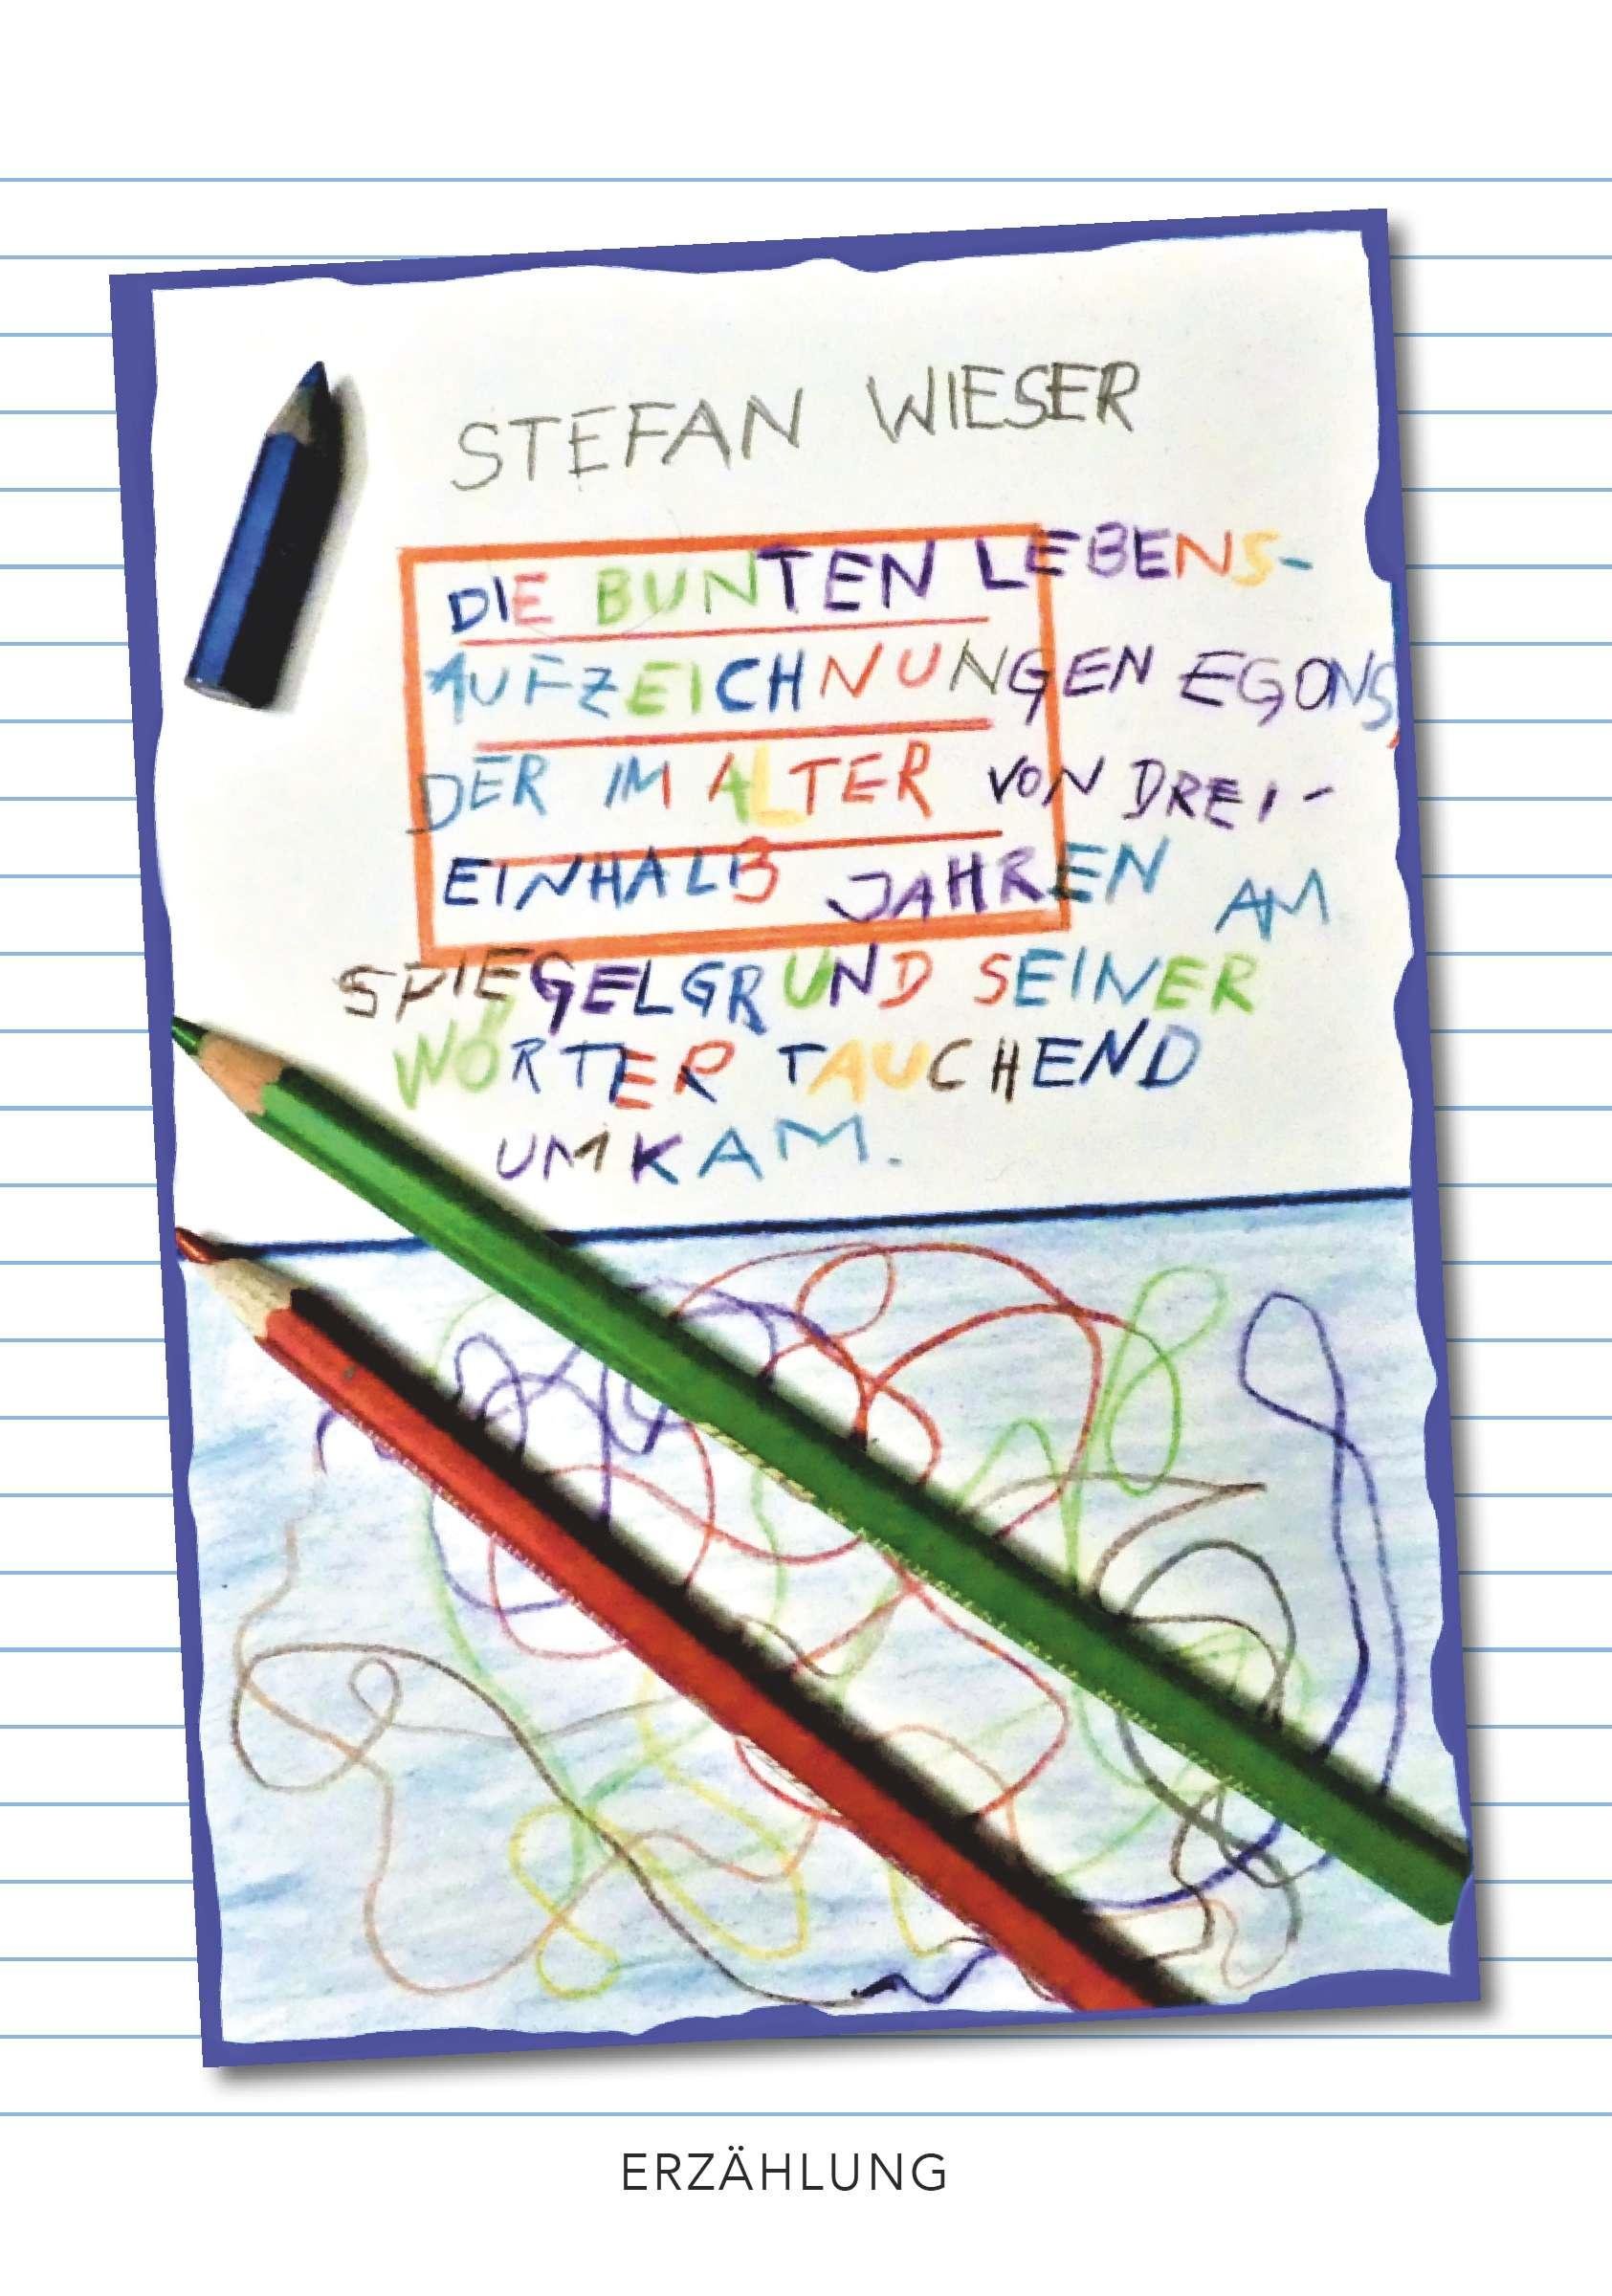 STEFAN WIESER
DIE BUNTEN LEBENS-
AUFZEICHNUNGEN EGONS,
DER IM ALTER VON DREI-
EINHALB JAHREN AM
SPIEGELGRUND SEINER
WÖRTER TAUCHEND
UMKAM.
ERZÄHLUNG